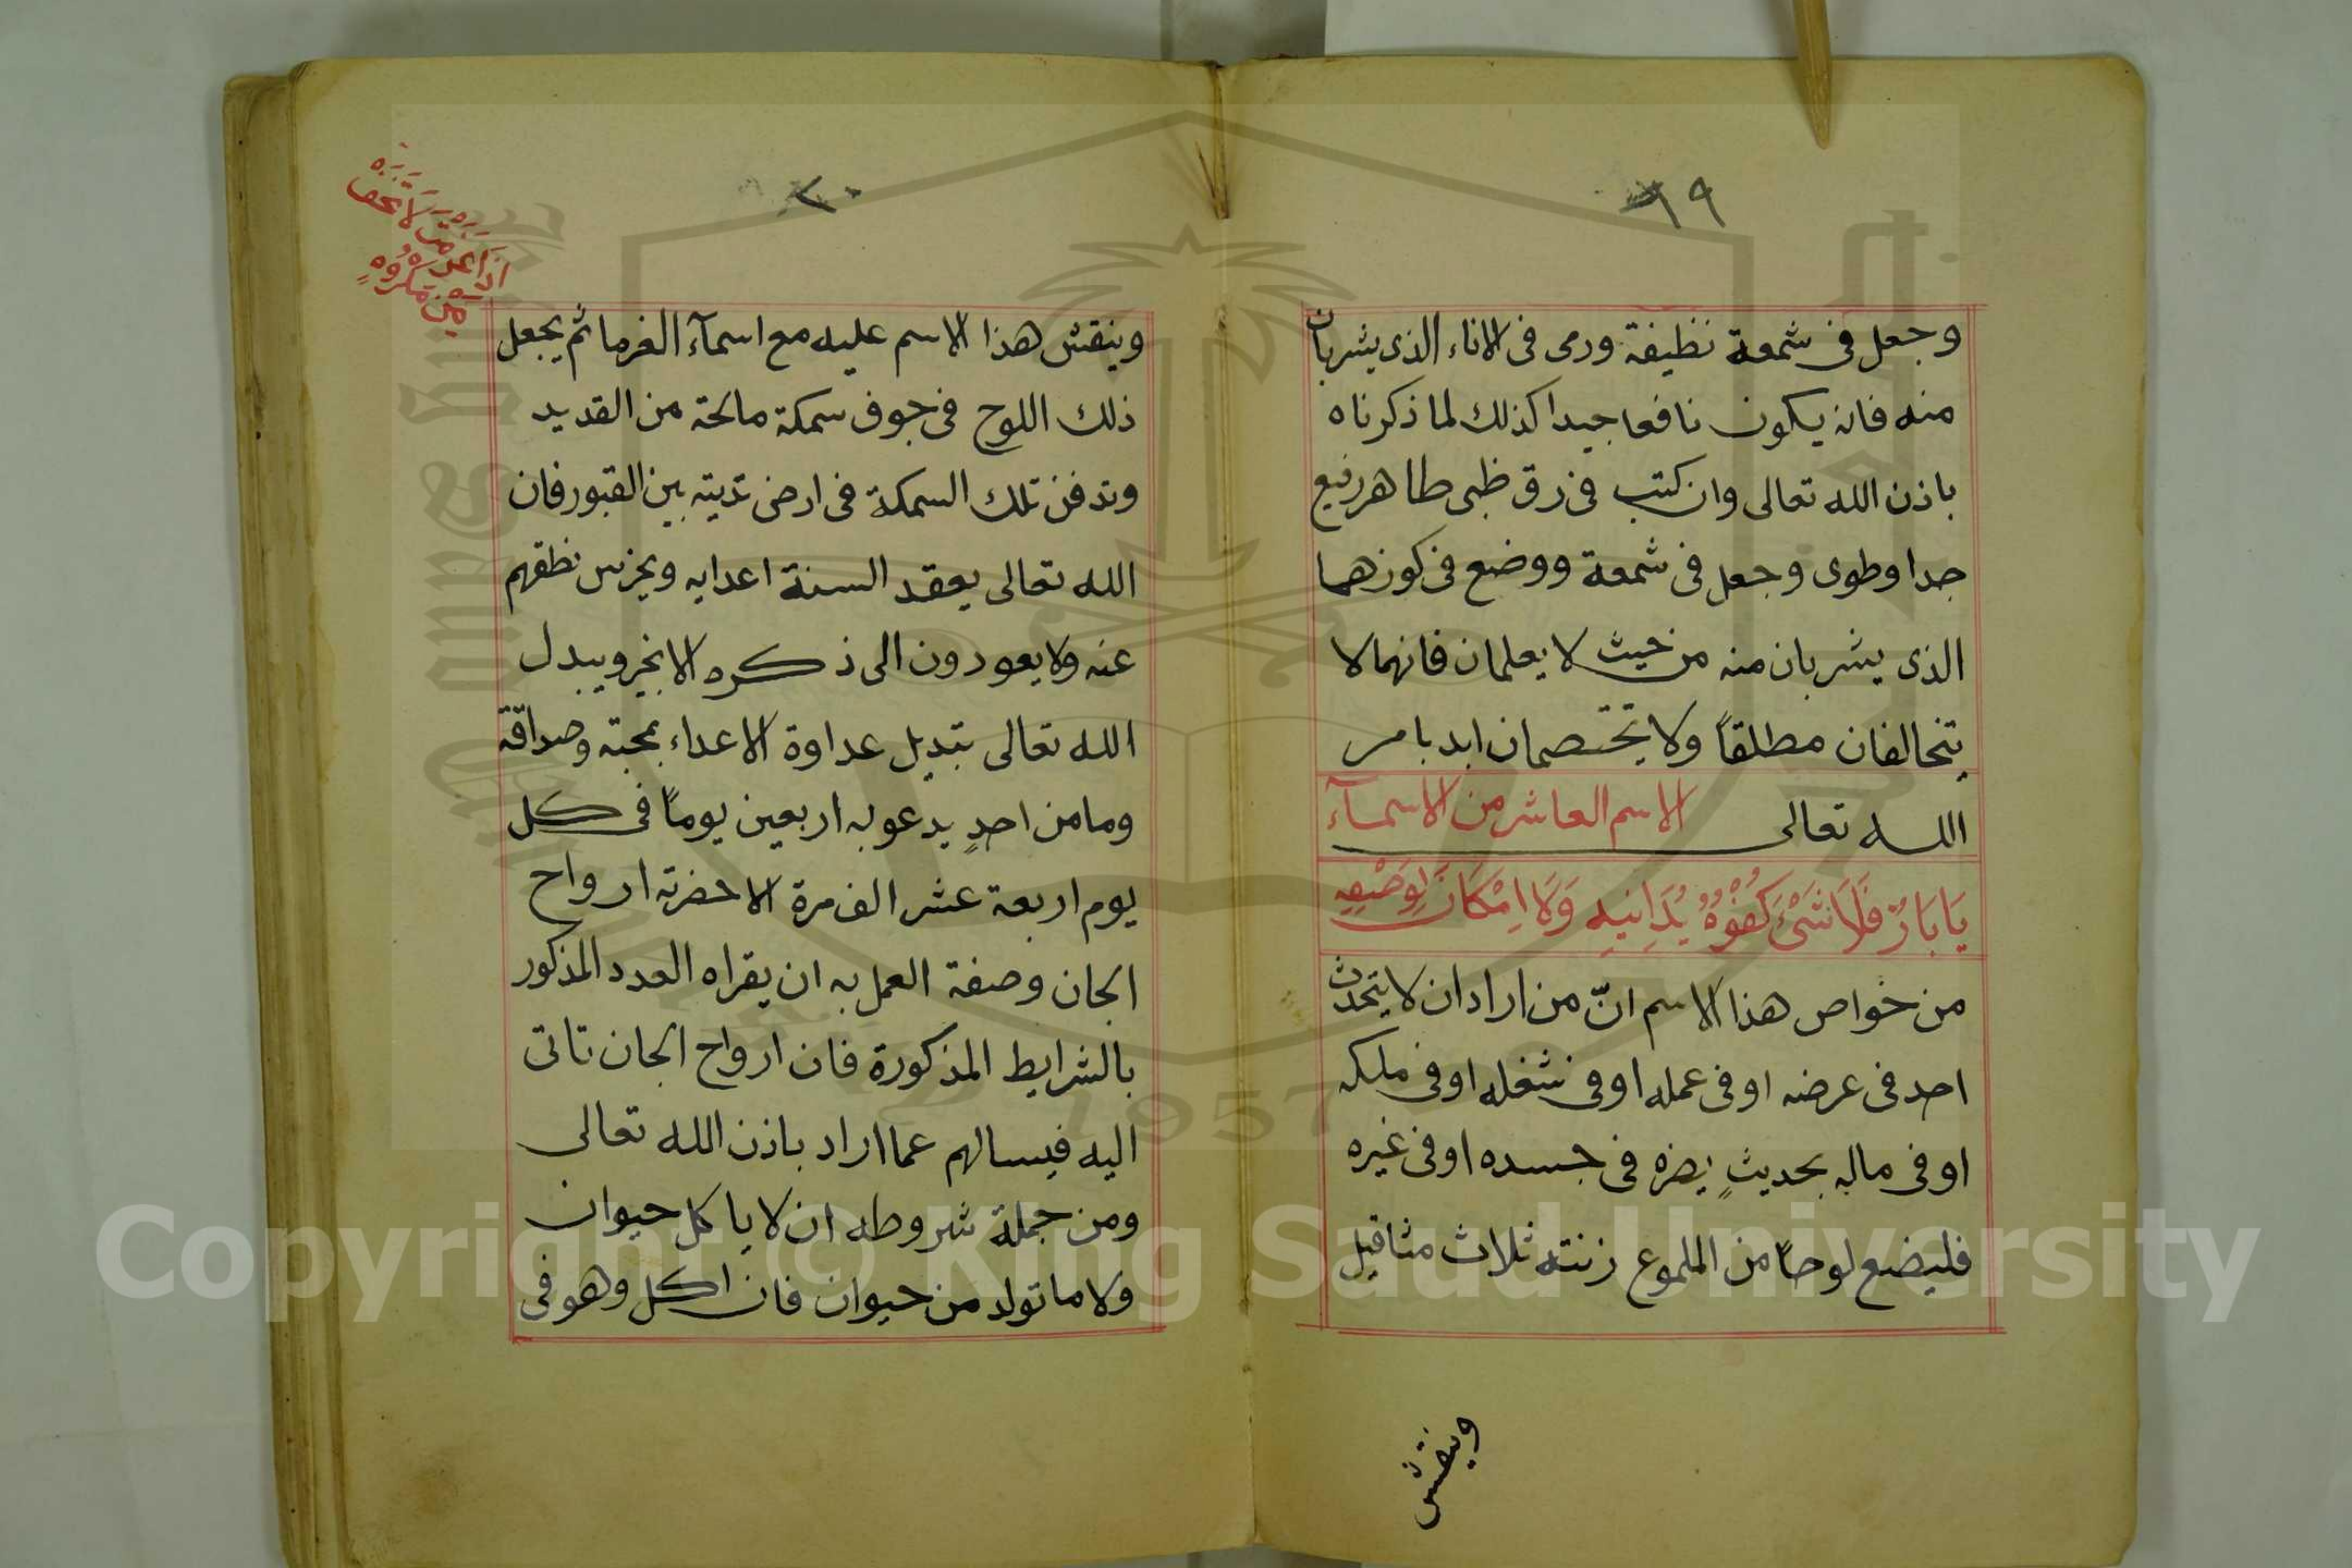 ١٩
وجعل فى شمعة نظيفة ورمى فى الاناء الذى يشربان
منه فانه يكون نافعا جيدا كذلك لما ذكرناه
باذن الله تعالى وان كتب فى رق ظبى طاهر رفيع
جدا وطوى وجعل فى شمعة ووضع فى كوزهما
الذى يشربان منه من حيث لا يعلمان فانهما لا
يتخالفان مطلقاً ولا يختصمان ابد بامر
الله تعالى الاسم العاشر من الاسمآء
يَا بَارُّ فَلَا شَىْءَ كُفْوُهُ يُدَانِيهِ وَلَا اِمْكَانَ لِوَصْفِهِ
من خواص هذا الاسم انّ من اراد ان لا يتحدث
احد فى عرضه او فى عمله او فى شغله او فى ملكه
او فى ماله بحديثٍ يضره فى جسده او فى غيره
فليضع لوحاً من الملموع زنته ثلاث مثاقيل
وينقش
٢٠
وينقش هذا الاسم عليه مع اسمآء الغرما ثم يجعل
ذلك اللوح فى جوف سمكة مالحة من القديد
وتدفن تلك السمكة فى ارض نديته بين القبور فان
الله تعالى يعقد السنة اعدايه ويخرس نطقهم
عنه ولا يعودون الى ذكره الا بخير ويبدل
الله تعالى بتبديل عداوة الاعداء بمحبته وصداقة
وما من احدٍ يدعو به اربعين يوماً فى كل
يوم اربعة عشر الف مرة الا حضرته ارواح
الجان وصفة العمل به ان يقراه العدد المذكور
بالشرايط المذكورة فان ارواح الجان تاتى
اليه فيسالهم عما اراد باذن الله تعالى
ومن جملة شروطه ان لا ياكل حيوان
ولا ما تولد من حيوان فان اكل وهو فى
Copyright © King Saud University
1957